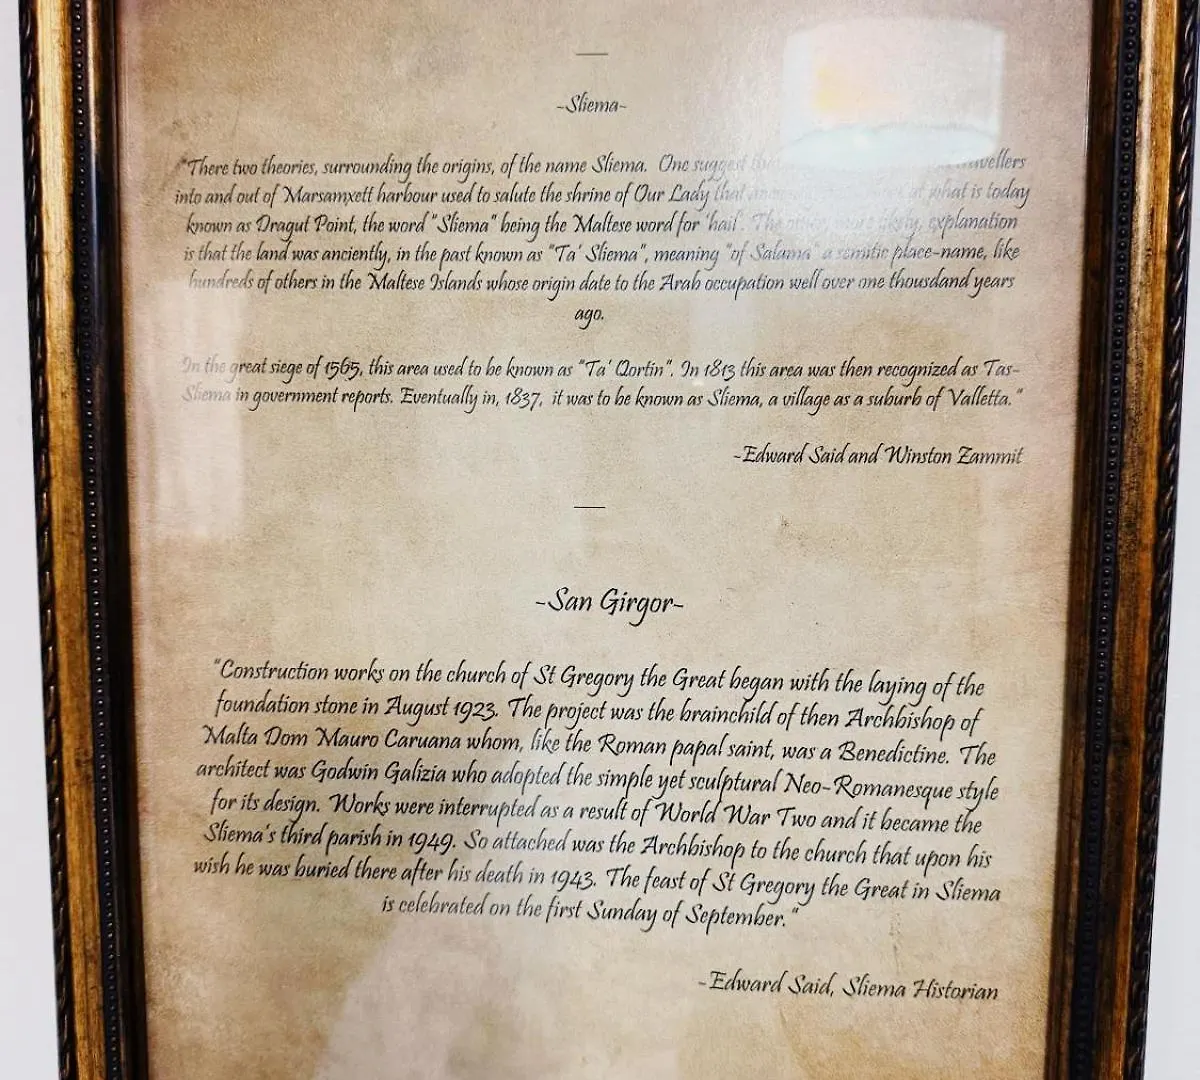 ~Sliema~
"There two theories, surrounding the origins, of the name Sliema. One suggest that travellers
into and out of Marsamxett harbour used to salute the shrine of Our Lady that at what is today
known as Dragut Point, the word "Sliema" being the Maltese word for 'hail'. The other, more likely, explanation
is that the land was anciently, in the past known as "Ta' Sliema", meaning "of Salama" a semitic place-name, like
hundreds of others in the Maltese Islands whose origin date to the Arab occupation well over one thousdand years
ago.
In the great siege of 1565, this area used to be known as "Ta' Qortin". In 1813 this area was then recognized as Tas-
Sliema in government reports. Eventually in, 1837, it was to be known as Sliema, a village as a suburb of Valletta."
-Edward Said and Winston Zammit
~San Girgor~
"Construction works on the church of St Gregory the Great began with the laying of the
foundation stone in August 1923. The project was the brainchild of then Archbishop of
Malta Dom Mauro Caruana whom, like the Roman papal saint, was a Benedictine. The
architect was Godwin Galizia who adopted the simple yet sculptural Neo-Romanesque style
for its design. Works were interrupted as a result of World War Two and it became the
Sliema's third parish in 1949. So attached was the Archbishop to the church that upon his
wish he was buried there after his death in 1943. The feast of St Gregory the Great in Sliema
is celebrated on the first Sunday of September."
-Edward Said, Sliema Historian